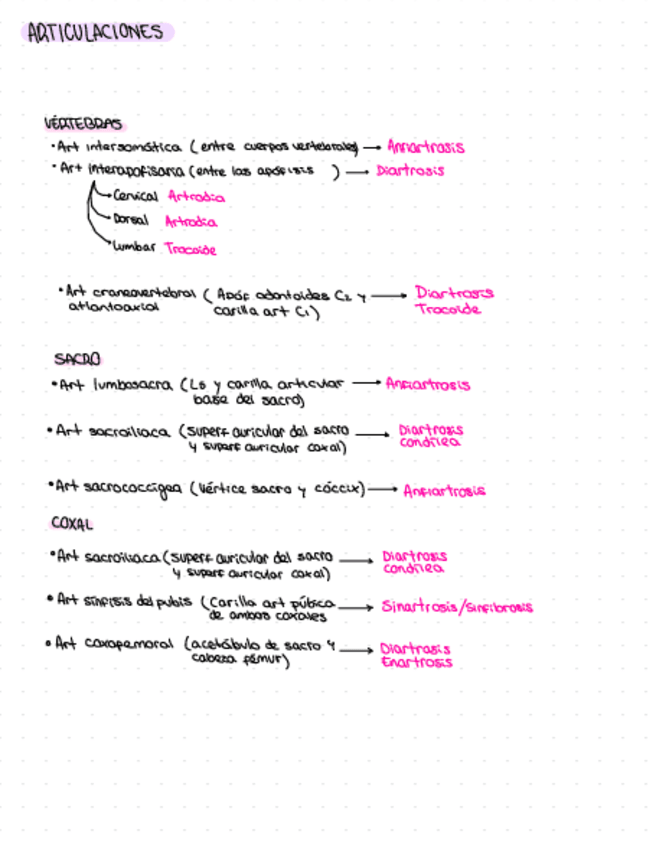 ARTICULACIONES
VÉRTEBRAS
· Art intersomática (entre cuerpos vertebrales) → Anfiartrosis
· Art interapofisaria (entre las apófisis ) → Diartrosis
Cervical Artrodia
Dorsal Artrodia
Lumbar Trocoide
· Art craneovertebral (Apóf odontoides C2 y → Diartrosis
atlantoaxial carilla art C1) Trocoide
SACRO
· Art lumbosacra (L5 y carilla articular → Anfiartrosis
base del sacro)
· Art sacroiliaca (superf auricular del sacro → Diartrosis
y superf auricular coxal) condílea
· Art sacrococcígea (vértice sacro y cóccix) → Anfiartrosis
COXAL
· Art sacroiliaca (superf auricular del sacro → Diartrosis
y superf auricular coxal) condílea
· Art sínfisis del pubis (Carilla art púbica → Sinartrosis/Sinfibrosis
de ambos coxales
· Art coxofemoral (acetábulo de sacro y → Diartrosis
cabeza fémur) Enartrosis